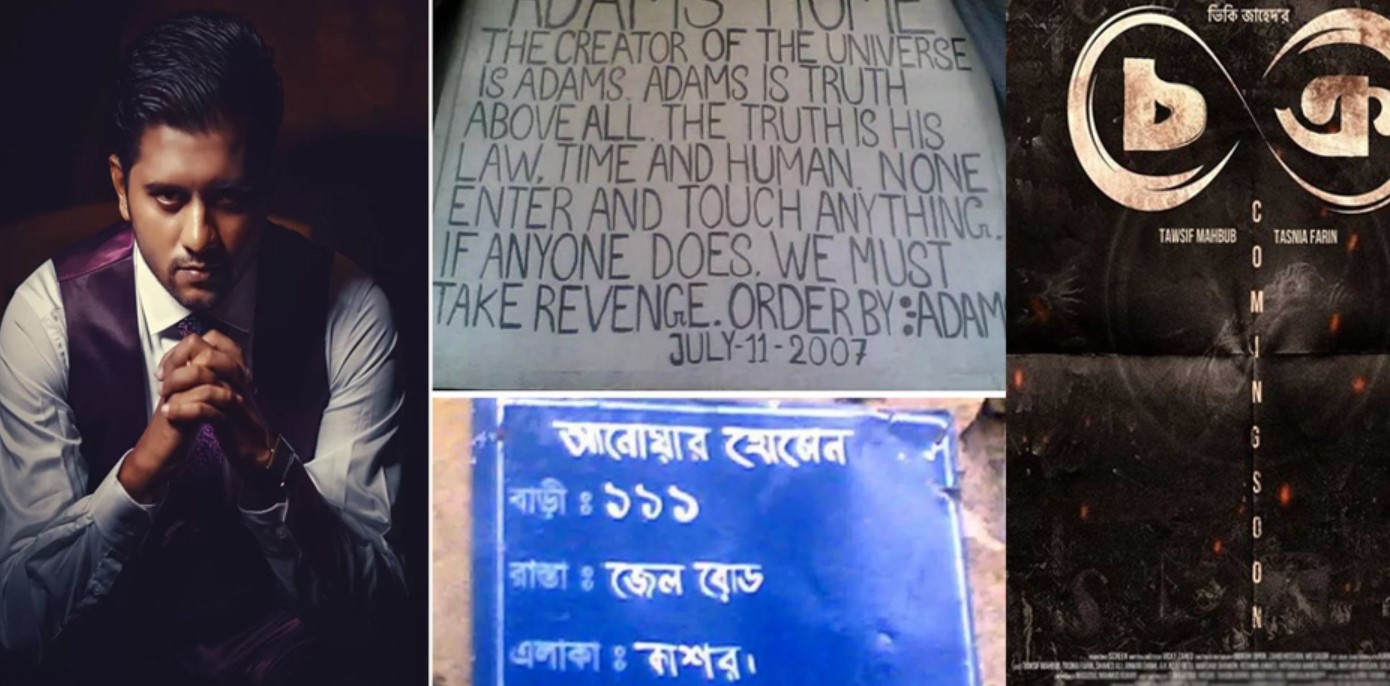 ADAMS HOME
THE CREATOR OF THE UNIVERSE
IS ADAMS. ADAMS IS TRUTH
ABOVE ALL. THE TRUTH IS HIS
LAW, TIME AND HUMAN. NONE
ENTER AND TOUCH ANYTHING.
IF ANYONE DOES. WE MUST
TAKE REVENGE. ORDER BY : ADAM
JULY-11-2007
আনোয়ার হোসেন
বাড়ী : ১১১
রাস্তা : জেল রোড
এলাকা : কাশর।
ভিকি জাহেদ'র
চক্র
TAWSIF MAHBUB TASNIA FARIN
COMING SOON